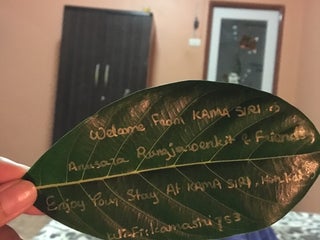 Welcome From KAMA SIRI :)
Anusara Rangjaroenkit & Friends
Enjoy Your Stay At KAMA SIRI,
Wi-Fi: kamasiri